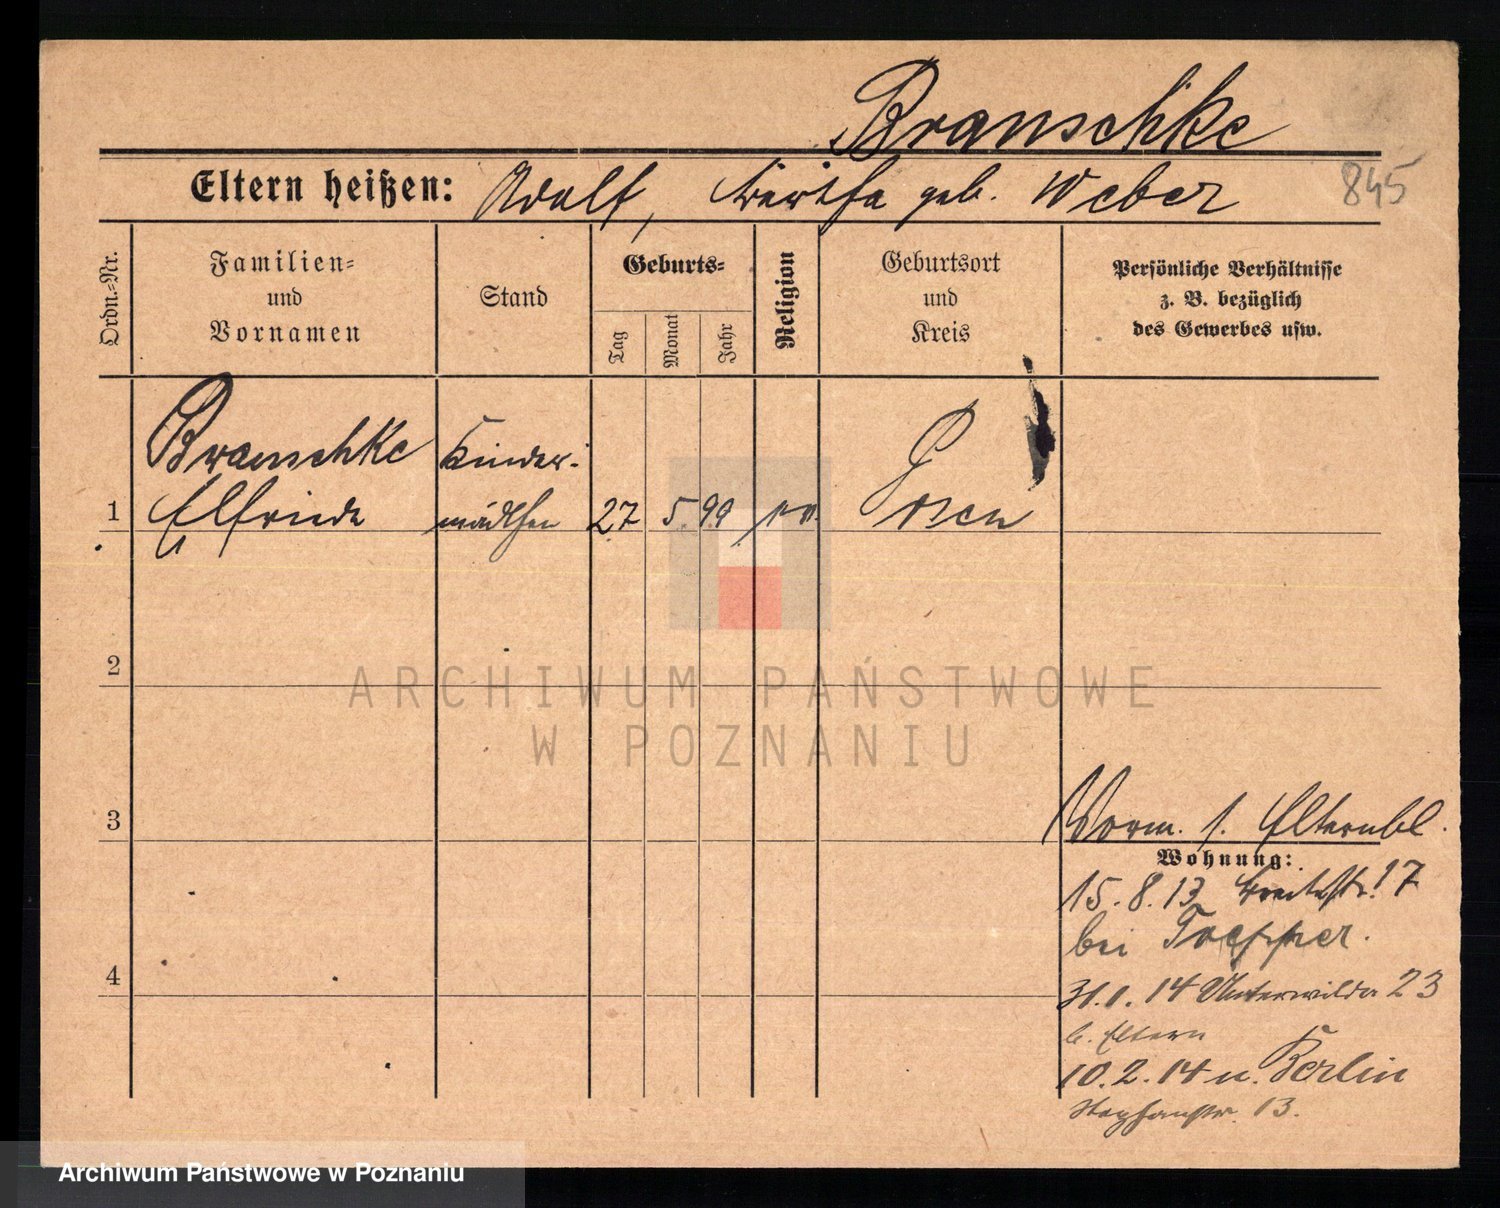 Branschke
Eltern heißen: Adolf, Bertha geb. Weber
845
Ordn.-Nr.
Familien-
und
Vornamen
Stand
Geburts-
Tag
Monat
Jahr
Religion
Geburtsort
und
Kreis
Persönliche Verhältnisse
z. B. bezüglich
des Gewerbes usw.
Branschke Kinder-
1 Elfriede mädchen 27 5. 99 Posen
2
ARCHIWUM PAŃSTWOWE
W POZNANIU
3
Vorm. s. Elternbl.
Wohnung:
15. 8. 13 Breitestr. 17
bei Toepper.
4
31. 1. 14 Unterwilda 23
b. Eltern
10. 2. 14 n. Berlin
Stephanstr. 13.
Archiwum Państwowe w Poznaniu